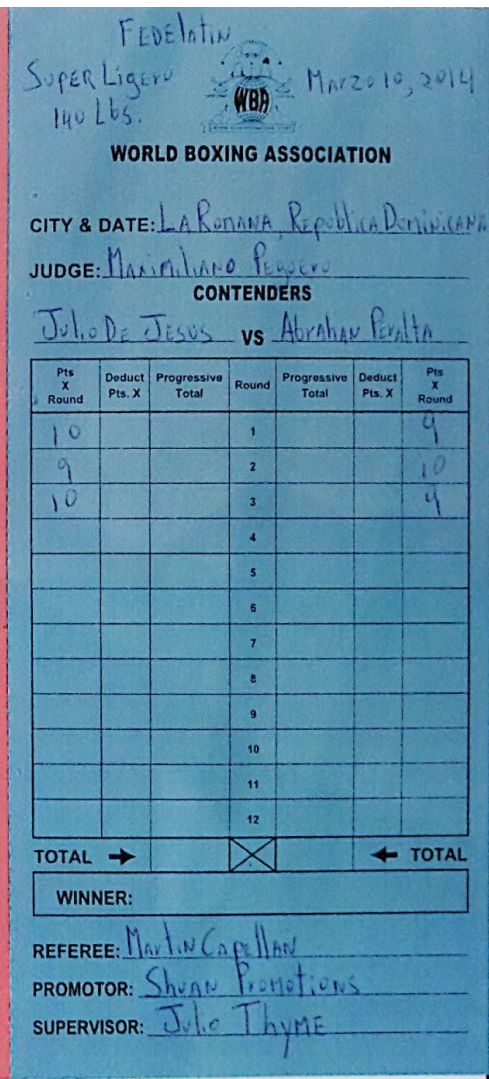 FEDElatin
SUPER Ligero
Marzo 10, 2014
140 Lbs.
WBA
WORLD BOXING ASSOCIATION
CITY & DATE: LA ROMANA, REPUBLICA DOMINICANA
JUDGE: MAXIMILIANO PEGUERO
CONTENDERS
Julio DE JESUS VS Abrahan Peralta
Pts X Round Deduct Pts. X Progressive Total Round Progressive Total Deduct Pts. X Pts X Round
10 1 9
9 2 10
10 3 9
4
5
6
7
8
9
10
11
12
TOTAL → ← TOTAL
WINNER:
REFEREE: Martin Capellan
PROMOTOR: Shuan Promotions
SUPERVISOR: Julio Thyme